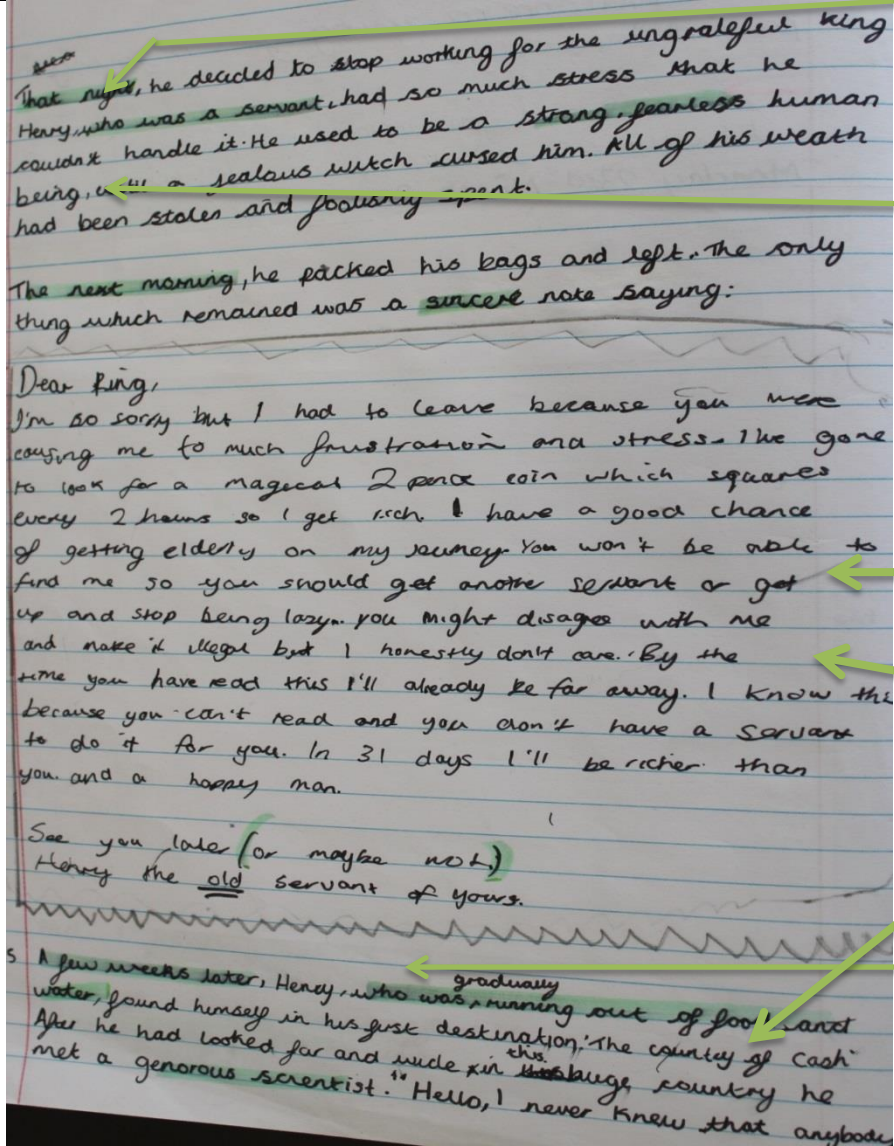 That night, he decided to stop working for the ungrateful king
Henry, who was a servant, had so much stress that he
couldn't handle it. He used to be a strong, fearless human
being, until a jealous witch cursed him. All of his weath
had been stolen and foolishly spent.
The next morning, he packed his bags and left. The only
thing which remained was a sincere note saying:
Dear King,
I'm so sorry but I had to leave because you were
causing me to much frustration and stress. I've gone
to look for a magical 2 pence coin which squares
every 2 hours so I get rich. I have a good chance
of getting elderly on my journey. You won't be able to
find me so you should get another servant or get
up and stop being lazy. you might disagree with me
and make it illegal but I honestly don't care. By the
time you have read this I'll already be far away. I know this
because you can't read and you don't have a servant
to do it for you. In 31 days I'll be richer than
you and a happy man.
See you later (or maybe not.)
Henry the old servant of yours.
A few weeks later, Henry, who was gradually running out of food and
water, found himself in his first destination: 'The country of Cash'
After he had looked far and wide in this huge country he
met a genorous scientist. "Hello, I never knew that anybody